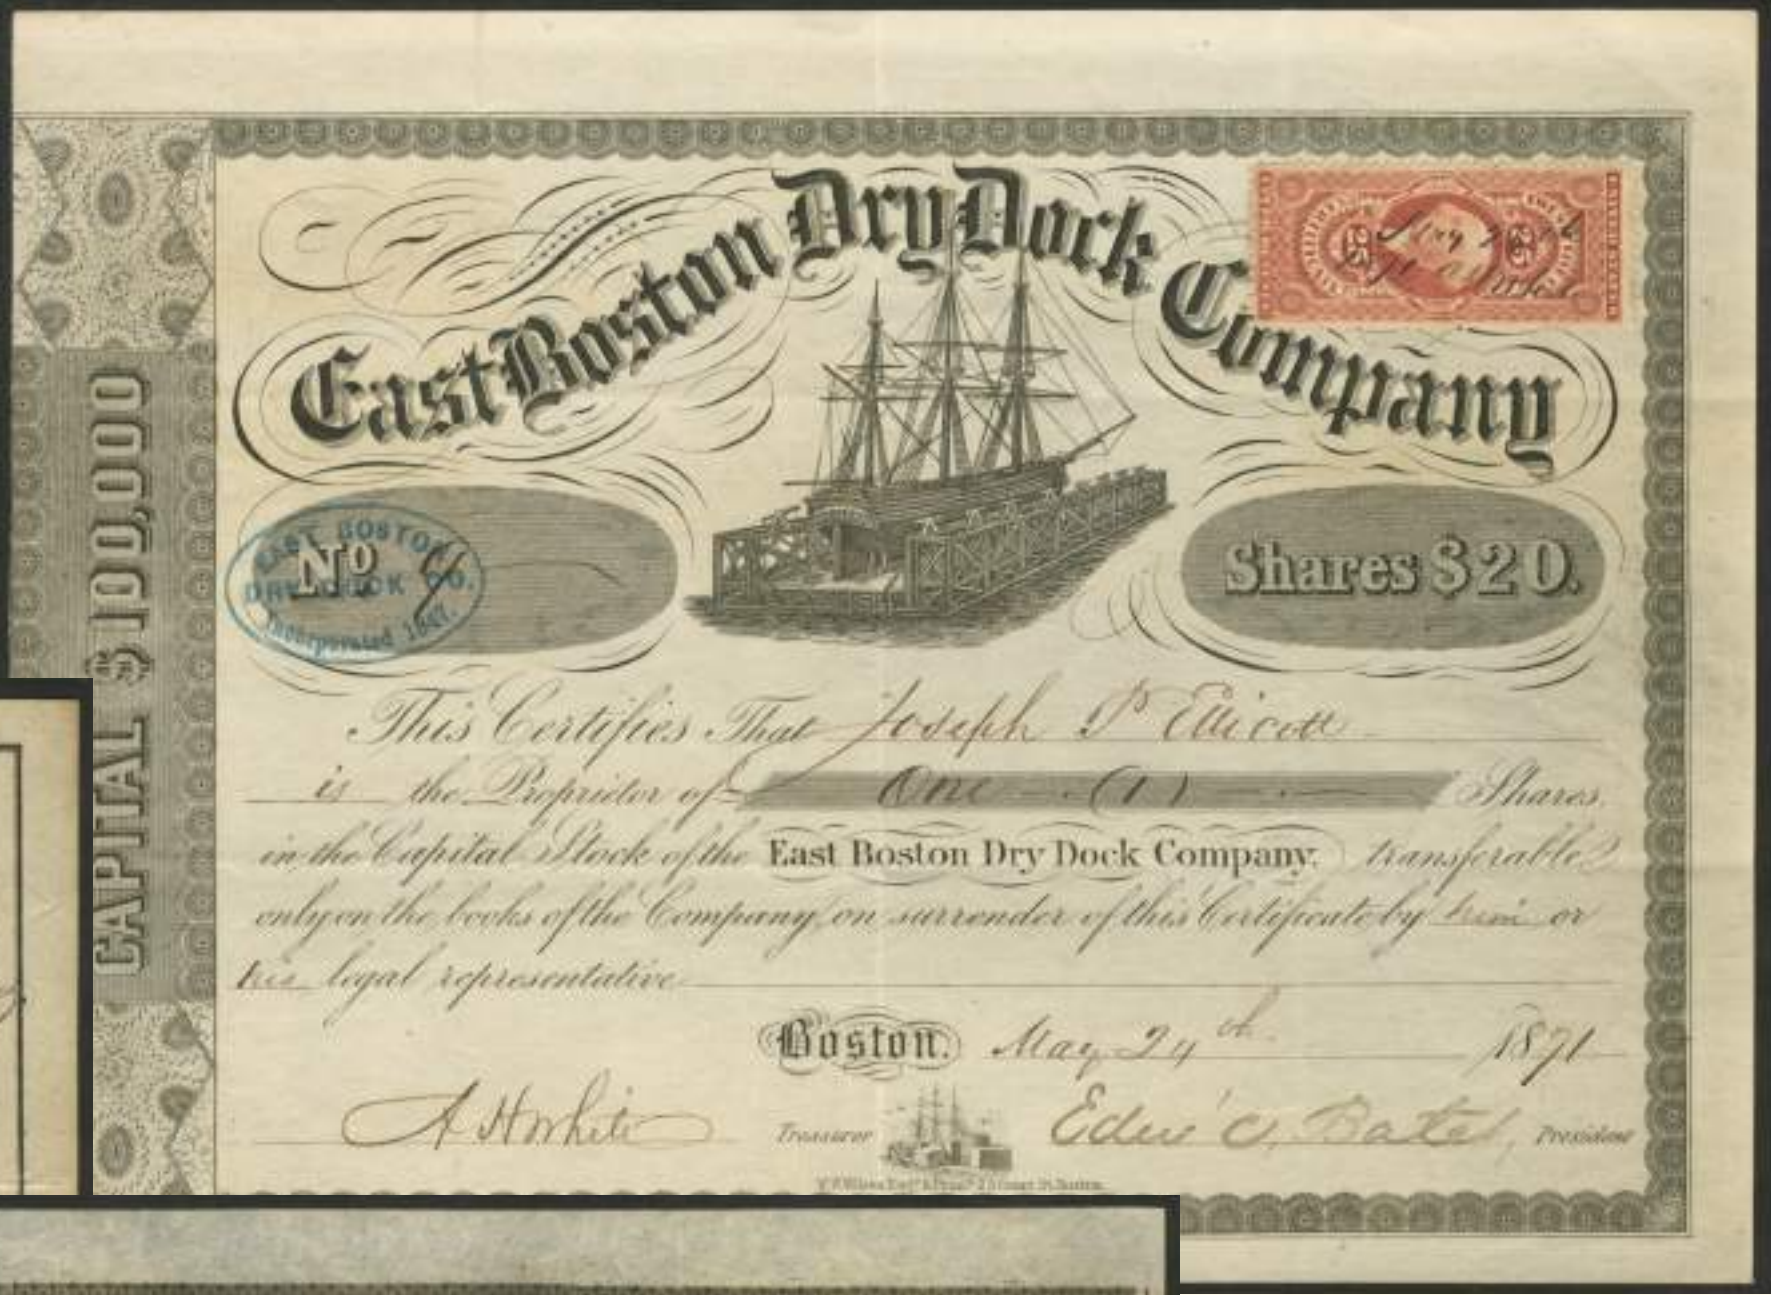 East Boston Dry Dock Company
CAPITAL $100,000
EAST BOSTON
DRY DOCK CO.
Incorporated 1847.
No
Shares $20.
This Certifies That Joseph P Ellicott
is the Proprietor of One (1) Shares
in the Capital Stock of the East Boston Dry Dock Company, transferable
only on the books of the Company, on surrender of this Certificate by him or
his legal representative
Boston. May 24th 1871
A H White Treasurer Edw C. Bates, President